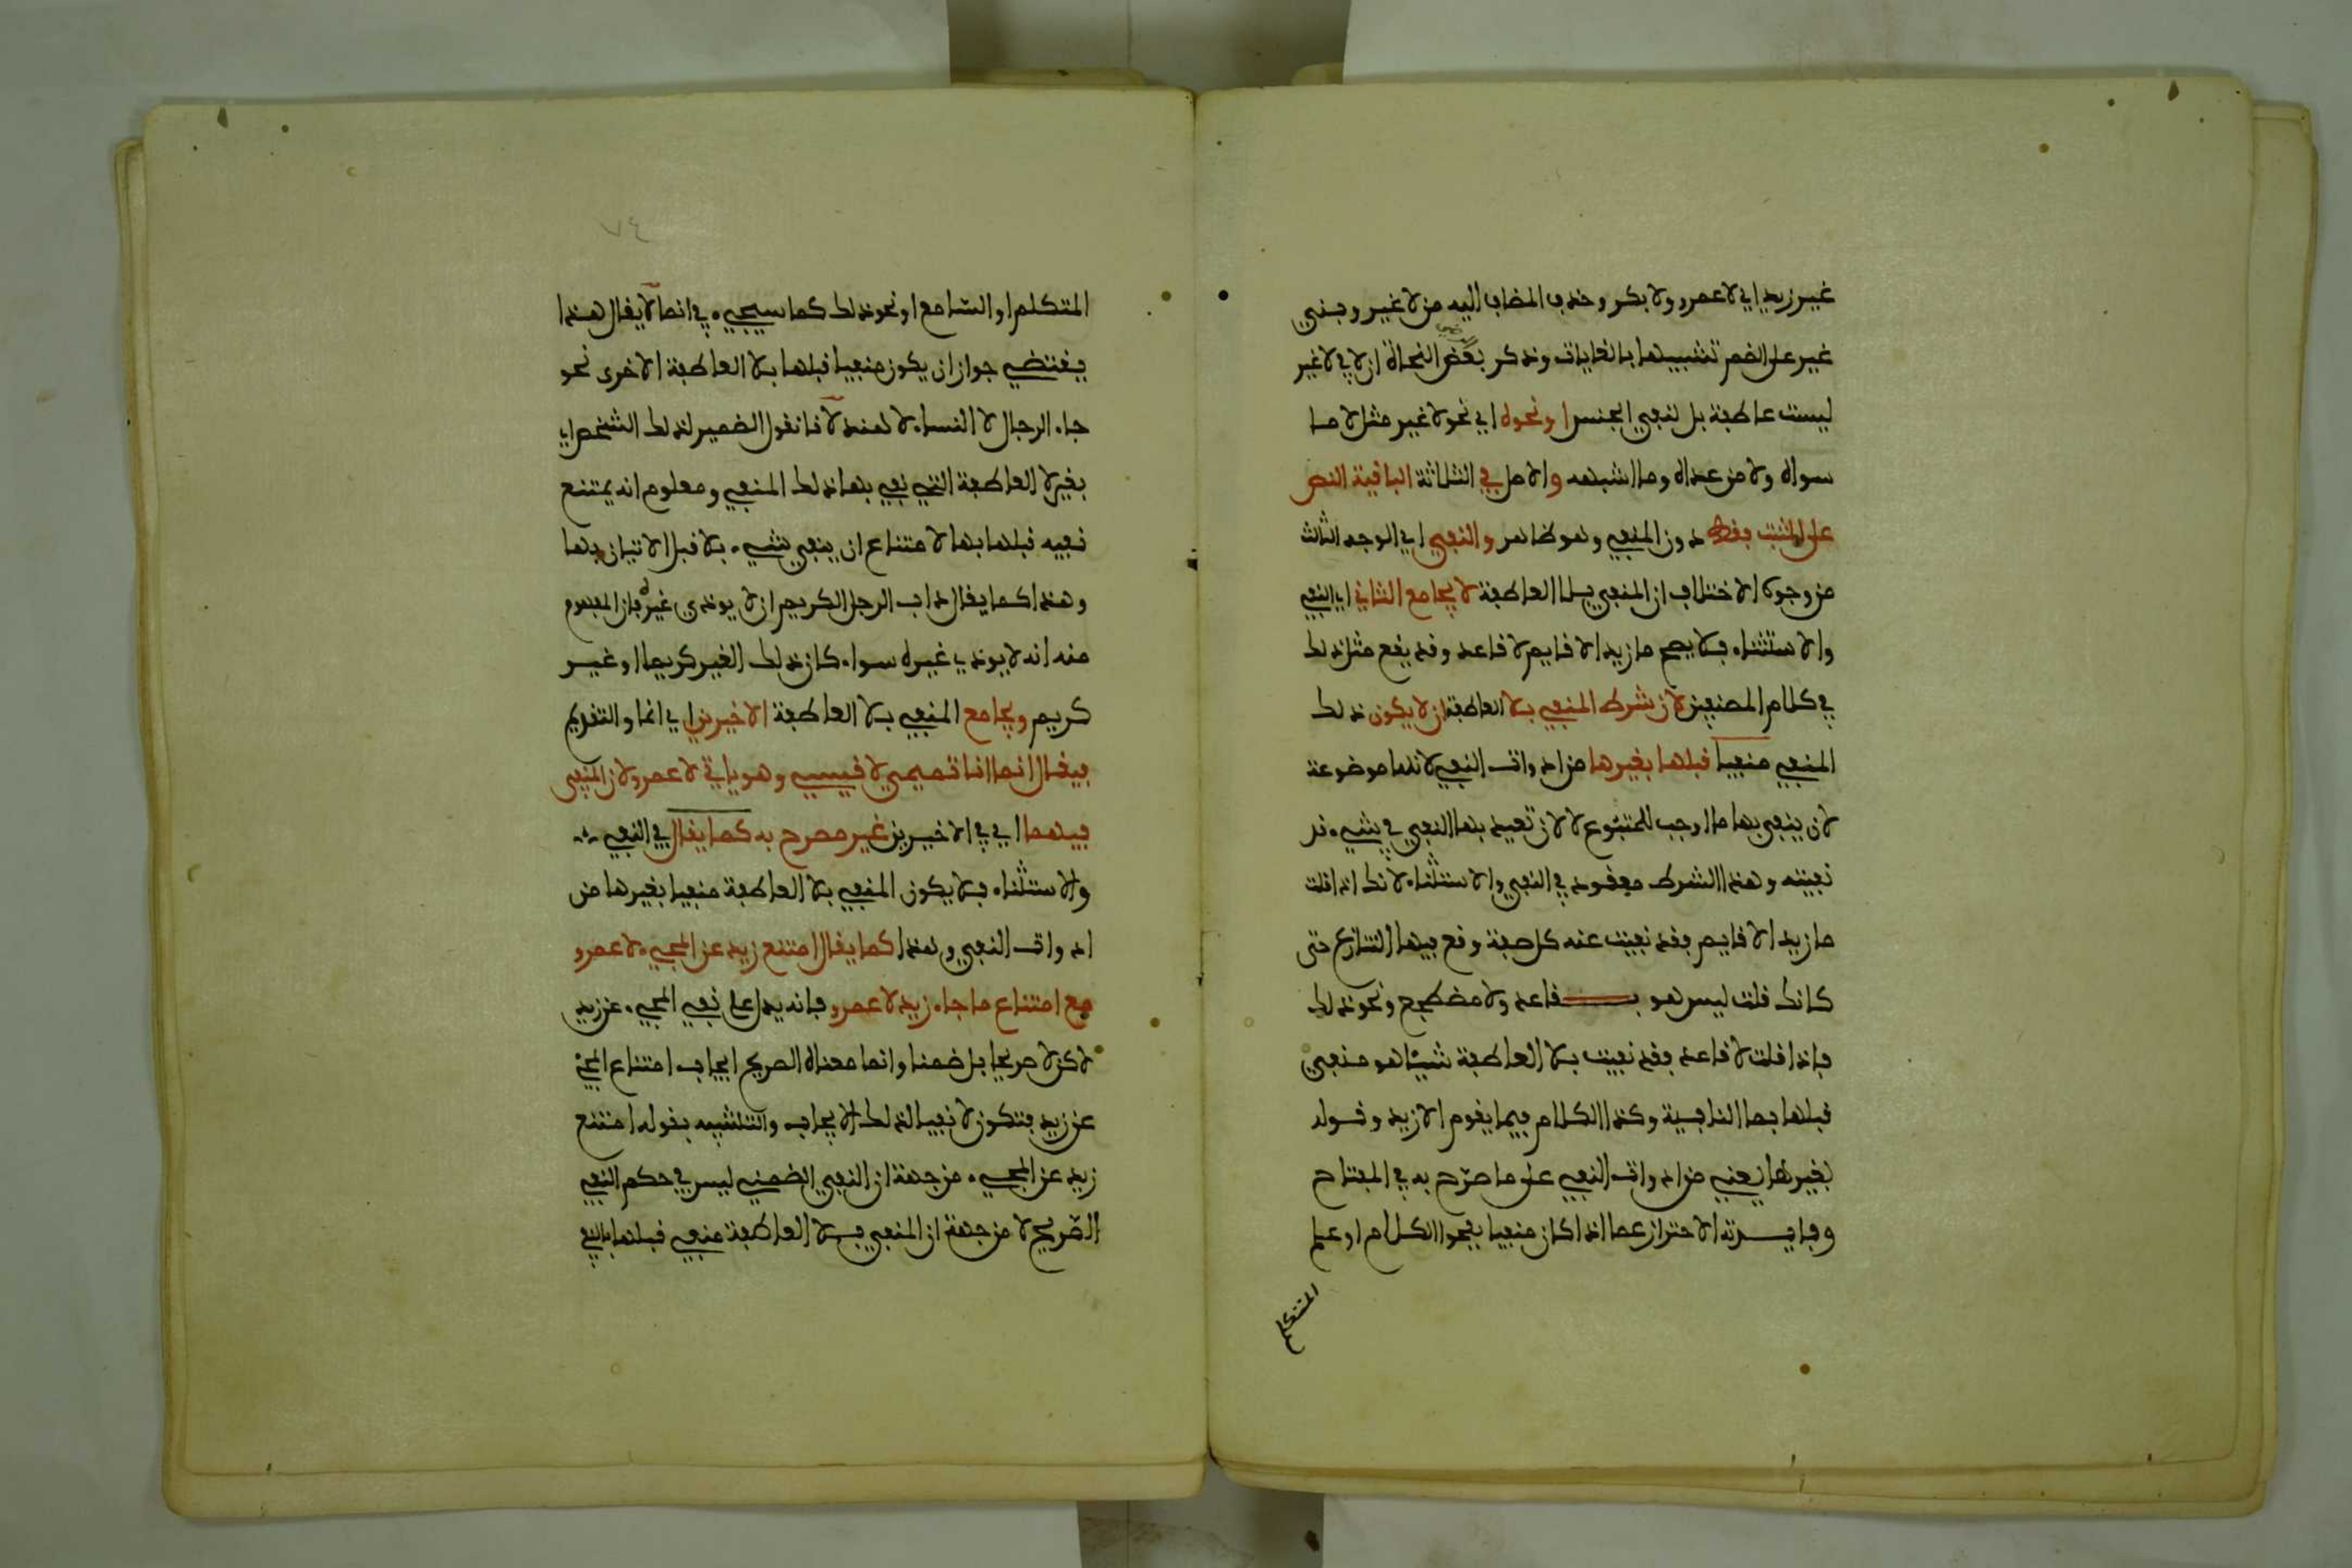 غير زيد اي لا عمرو ولا بكر وحذف المضاف اليه من لا غير وبني
غير على الضم تشبيها بالغايات وذكر بعض النحاة ان لا في لا غير
ليست عاطفة بل لنفي الجنس او نحوه اي نحو لا غير مثل لا ما
سواه ولا من عداه وما اشبهه والاصل في الثلاثة الباقية النص
على المثبت فقط دون المنفي وهو ظاهر والنفي اي الوجه الثالث
من وجوه الاختلاف ان المنفي بلا العاطفة لا يجامع الثاني اي النفي
والاستثناء فلا يصح ما زيد الا قايم لا قاعد وقد يقع مثل ذلك
في كلام المصنفين لان شرط المنفي بلا العاطفة ان لا يكون ذلك
المنفي منفيا قبلها بغيرها من ادوات النفي لانها موضوعة
لان ينفى بها ما اوجب للمتبوع لا لان تعيد بها النفي في شيء قد
نفيته وهذا الشرط مفقود في النفي والاستثناء لانك اذا قلت
ما زيد الا قايم فقد نفيت عنه كل صفة وقع فيها التنازع حتى
كانك قلت ليس هو بقاعد ولا مضطجع ونحو ذلك
فاذا قلت لا قاعد فقد نفيت بلا العاطفة شيئا هو منفي
قبلها بما النافية وكذا الكلام فيما يقوم الا زيد وقوله
بغيرها يعني من ادوات النفي على ما صرّح به في المفتاح
وفايدته الاحتراز عما اذا كان منفيا بفحوا الكلام او علم
المتكلم
٧٤
المتكلم او السّامع او نحو ذلك كما سيجيء في انما لا يقال هذا
يقتضي جواز ان يكون منفيا قبلها بلا العاطفة الاخرى نحو
جاء الرجال لا النساء لا هند لانا نقول الضمير لذلك الشخص اي
بغير لا العاطفة التي نفي بها ذلك المنفي ومعلوم انه يمتنع
نفيه قبلها بها لامتناع ان ينفي شيء بلا قبل الاتيان بها
وهذا كما يقال داب الرجل الكريم ان لا يوذي غيره فان المفهوم
منه انه لا يوذي غيره سواء كان ذلك الغير كريما او غير
كريم ويجامع المنفي بلا العاطفة الاخيرين اي انما والتقديم
فيقال انما انا تميمي لا قيسي وهو ياتي لا عمرو لان المنفي
فيهما اي في الاخيرين غير مصرح به كما يقال في النفي
والاستثناء فلا يكون المنفي بلا العاطفة منفيا بغيرها من
ادوات النفي وهذا كما يقال امتنع زيد عن المجيء لا عمرو
مع امتناع ما جاء زيد لا عمرو فانه يدل على نفي المجيء عن زيد
لكن لا صريحا بل ضمنا وانما معناه الصريح ايجاب امتناع المجيء
عن زيد فتكون لا نفيا لذلك الايجاب والتشبيه بقوله امتنع
زيد عن المجيء من جهة ان النفي الضمني ليس في حكم النفي
الصّريح لا من جهة ان المنفي بلا العاطفة منفي قبلها بالنفي